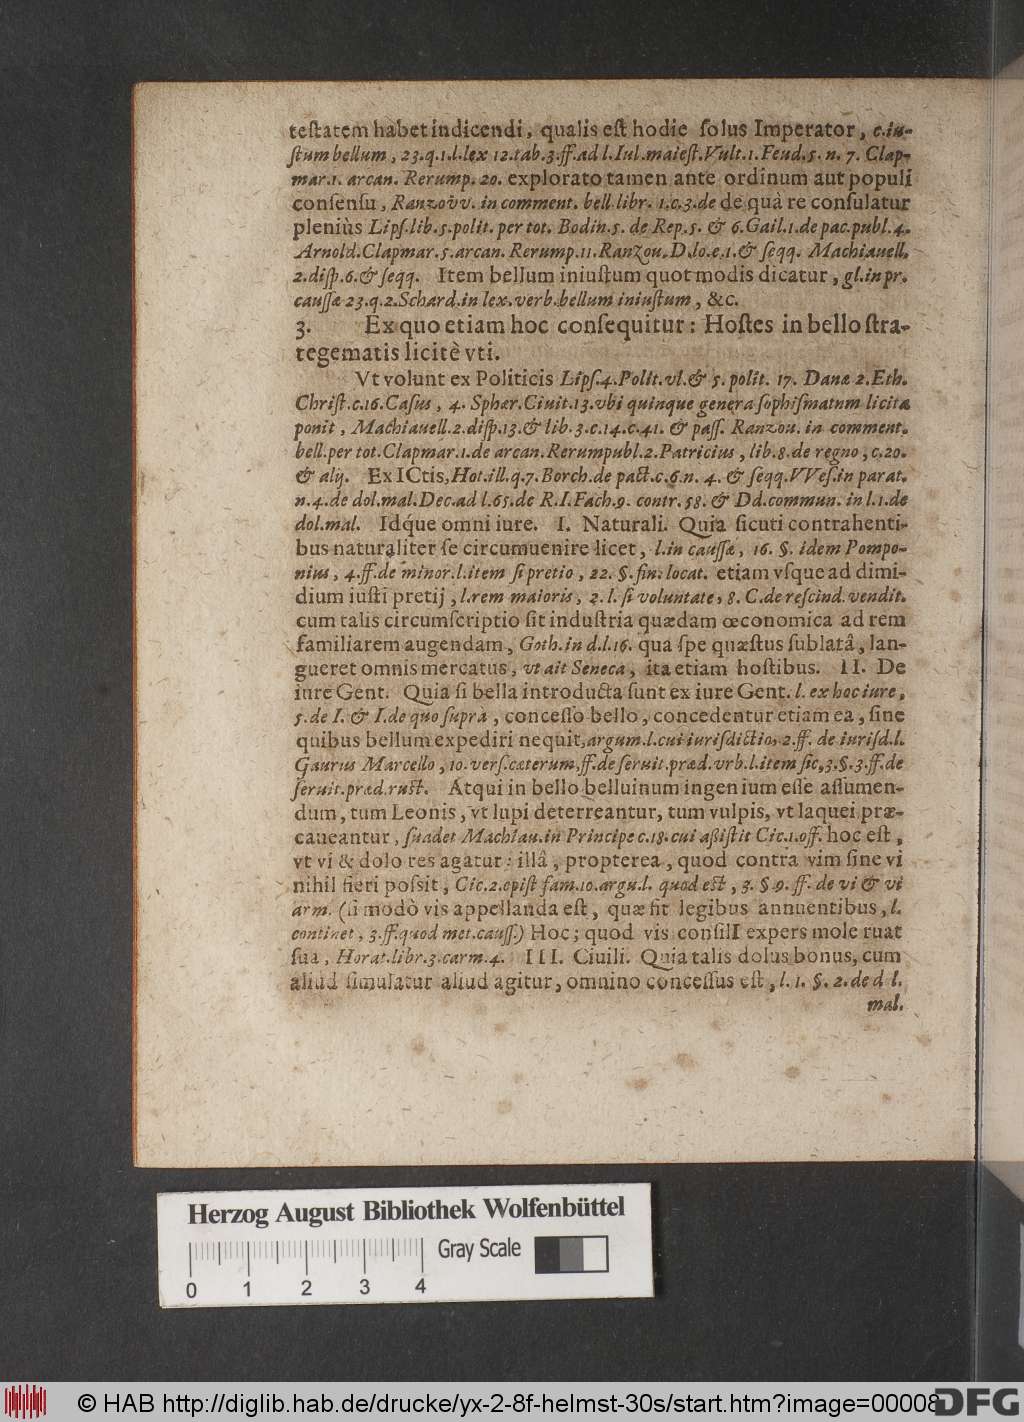 teſtatem habet indicendi, qualis eſt hodie ſolus Imperator, c.iu-
ſtum bellum, 23.q.1.l.lex 12.tab.3.ff.ad l.Iul.maieſt.Vult.1.Feud.5.n.7. Clap-
mar.1. arcan. Rerump. 20. explorato tamen ante ordinum aut populi
conſenſu, Ranzovv. in comment. bell.libr. 1.c.3.de de quâ re conſulatur
pleniùs Lipſ.lib.5.polit. per tot. Bodin.5. de Rep.5. & 6.Gail.1.de pac.publ.4.
Arnold.Clapmar.5.arcan. Rerump.11.Ranzou.D.lo.e.1.& ſeqq. Machiauell.
2.diſp.6.& ſeqq. Item bellum iniuſtum quot modis dicatur, gl.in pr.
cauſſæ 23.q.2.Schard.in lex.verb.bellum iniuſtum, &c.
3. Ex quo etiam hoc conſequitur: Hoſtes in bello ſtra-
tegematis licitè vti.
Vt volunt ex Politicis Lipſ.4.Polit.vl.& 5. polit. 17. Danæ 2.Eth.
Chriſt.c.16.Caſus, 4. Sphær.Ciuit.13.vbi quinque genera ſophiſmatum licita
ponit, Machiauell.2.diſp.13.& lib.3.c.14.c.41. & paſſ. Ranzou. in comment.
bell.per tot.Clapmar.1.de arcan.Rerumpubl.2.Patricius, lib.8.de regno, c.20.
& alij. Ex ICtis, Hot.ill.q.7.Borch.de pact.c.6.n. 4. & ſeqq.VVeſ.in parat.
n.4.de dol.mal.Dec.ad l.65.de R.I.Fach.9. contr.58. & Dd.commun. in l.1.de
dol.mal. Idque omni iure. I. Naturali. Quia ſicuti contrahenti-
bus naturaliter ſe circumuenire licet, l.in cauſſæ, 16. §. idem Pompo-
nius, 4.ff.de minor.l.item ſi pretio, 22. §.fin. locat. etiam vſque ad dimi-
dium iuſti pretij, l.rem maioris, 2. l. ſi voluntate, 8. C.de reſcind.vendit.
cum talis circumſcriptio ſit induſtria quædam œconomica ad rem
familiarem augendam, Goth.in d.l.16. qua ſpe quæſtus ſublatâ, lan-
gueret omnis mercatus, vt ait Seneca, ita etiam hoſtibus. II. De
iure Gent. Quia ſi bella introducta ſunt ex iure Gent. l. ex hoc iure,
5.de I. & I.de quo ſuprà, conceſſo bello, concedentur etiam ea, ſine
quibus bellum expediri nequit, argum.l.cui iuriſdictio, 2.ff. de iuriſd.l.
Gaurus Marcello, 10. verſ.cæterum,ff.de ſeruit.præd.vrb.l.item ſic,3.§.3.ff.de
ſeruit.præd.ruſt. Atqui in bello belluinum ingenium eſſe aſſumen-
dum, tum Leonis, vt lupi deterreantur, tum vulpis, vt laquei præ-
caueantur, ſuadet Machiau.in Principe c.18.cui aßiſtit Cic.1.off. hoc eſt,
vt vi & dolo res agatur: illâ, propterea, quod contra vim ſine vi
nihil fieri poſsit, Cic.2.epiſt fam.10.argu.l. quod eſt, 3. §.9. ff. de vi & vi
arm. (ſi modò vis appellanda eſt, quæ fit legibus annuentibus, l.
continet, 3.ff.quod met.cauſſ.) Hoc; quod vis conſilI expers mole ruat
ſua, Horat.libr.3.carm.4. III. Ciuili. Quia talis dolus bonus, cum
aliud ſimulatur aliud agitur, omnino conceſſus eſt, l. 1. §. 2. de d l.
mal.
Herzog August Bibliothek Wolfenbüttel
Gray Scale
0 1 2 3 4
© HAB http://diglib.hab.de/drucke/yx-2-8f-helmst-30s/start.htm?image=00008
DFG